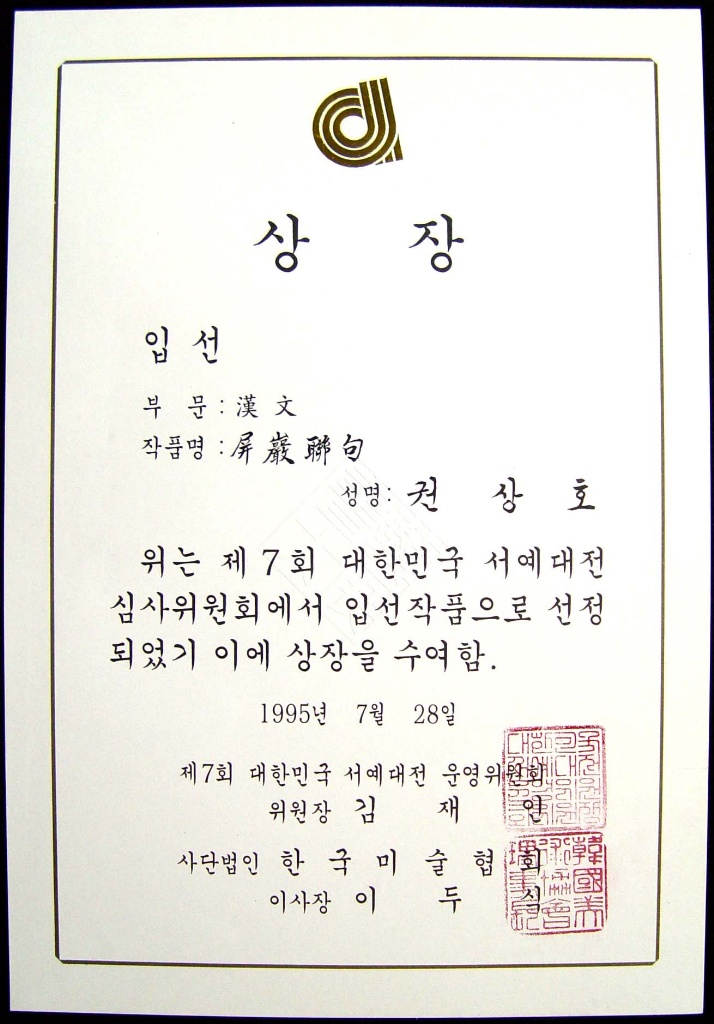 상 장
입 선
부 문 : 漢 文
작품명 : 屛巖聯句
성명: 권 상 호
위는 제 7 회 대한민국 서예대전
심사위원회에서 입선작품으로 선정
되었기 이에 상장을 수여함.
1995년 7월 28일
제7회 대한민국 서예대전 운영위원회
위원장 김 재 인
사단법인 한 국 미 술 협 회
이사장 이 두 식